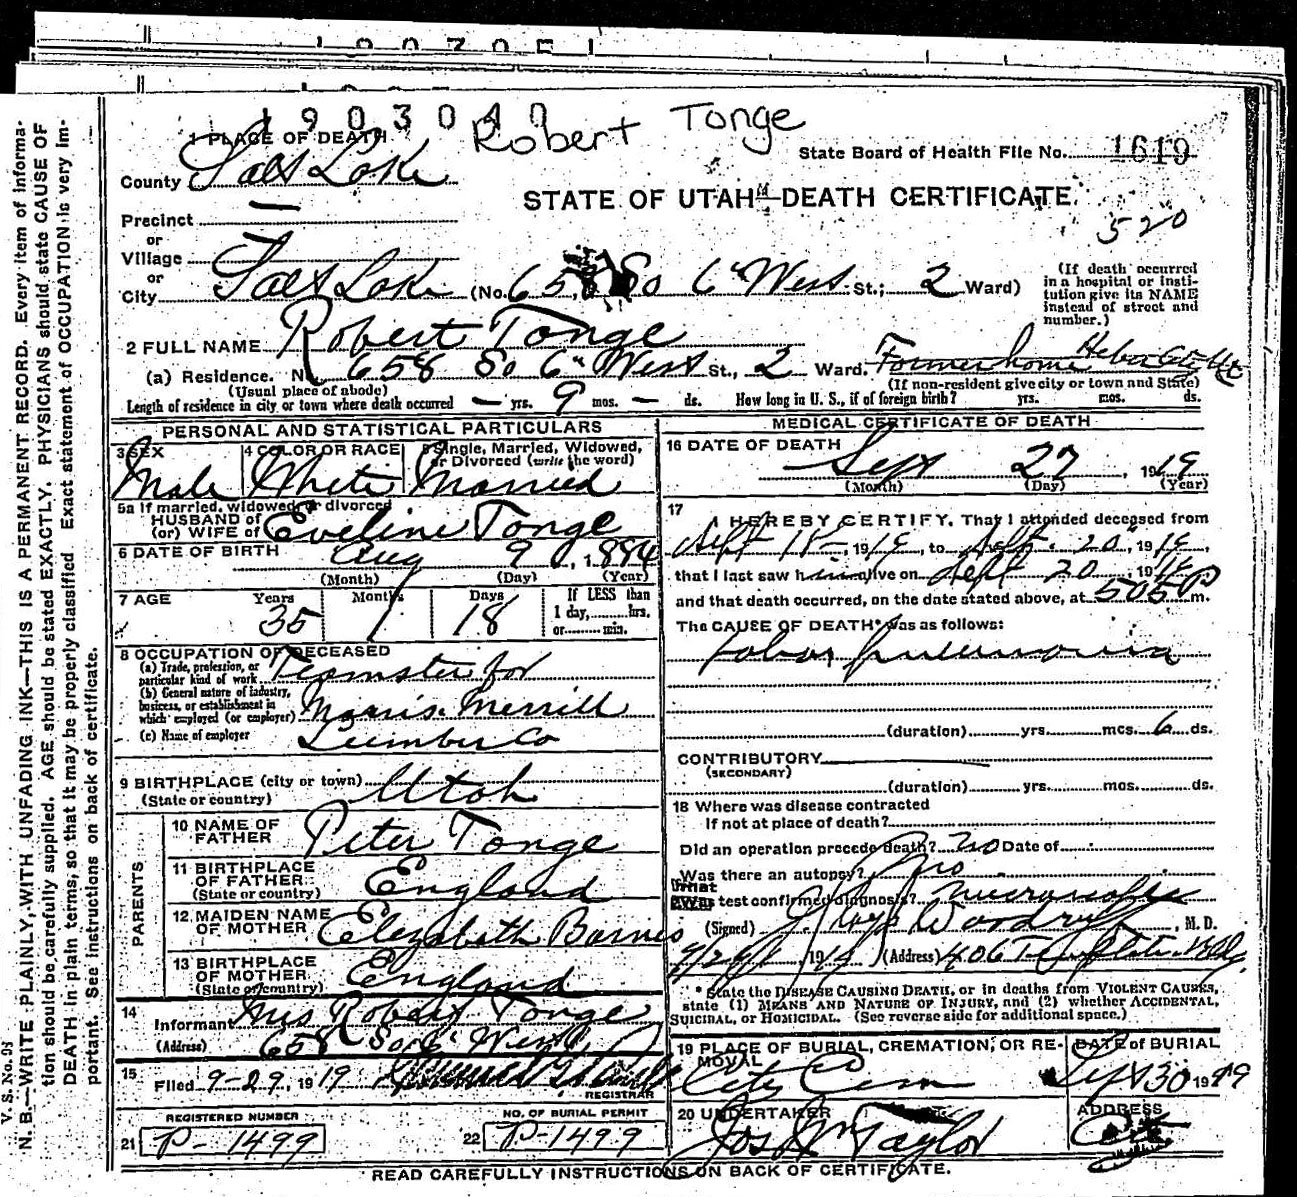 1903040
Robert Tonge
1 PLACE OF DEATH
State Board of Health File No. 1619
County Salt Lake
STATE OF UTAH—DEATH CERTIFICATE.
520
Precinct —
or
Village —
or
City Salt Lake (No. 658 So 6" West St.; 2 Ward)
(If death occurred in a hospital or institution give its NAME instead of street and number.)
2 FULL NAME Robert Tonge
(a) Residence. No. 658 So 6" West St., 2 Ward. Former home Heber City Ut
(Usual place of abode) (If non-resident give city or town and State)
Length of residence in city or town where death occurred — yrs. 9 mos. — ds. How long in U. S., if of foreign birth? yrs. mos. ds.
PERSONAL AND STATISTICAL PARTICULARS
3 SEX Male
4 COLOR OR RACE White
5 Single, Married, Widowed, or Divorced (write the word) Married
5a If married, widowed, or divorced
HUSBAND of
(or) WIFE of Eveline Tonge
6 DATE OF BIRTH Aug 9, 1884
(Month) (Day) (Year)
7 AGE Years 35 Months 1 Days 18 If LESS than
1 day, hrs.
or min.
8 OCCUPATION OF DECEASED
(a) Trade, profession, or particular kind of work Teamster for
(b) General nature of industry, business, or establishment in which employed (or employer) Morris Merrill
(c) Name of employer Lumber Co
9 BIRTHPLACE (city or town) Utah
(State or country)
PARENTS
10 NAME OF FATHER Peter Tonge
11 BIRTHPLACE OF FATHER (State or country) England
12 MAIDEN NAME OF MOTHER Elizabeth Barnes
13 BIRTHPLACE OF MOTHER (State or country) England
14
Informant Mrs Robert Tonge
(Address) 658 So 6" West
15 Filed 9-29, 1919
REGISTRAR
REGISTERED NUMBER
21 P-1499
NO. OF BURIAL PERMIT
22 P-1499
MEDICAL CERTIFICATE OF DEATH
16 DATE OF DEATH
Sept 27, 1919
(Month) (Day) (Year)
17
I HEREBY CERTIFY, That I attended deceased from
Sept 18, 1919, to Sept. 20, 1919,
that I last saw him alive on Sept 20, 1919
and that death occurred, on the date stated above, at 505 P m.
The CAUSE OF DEATH* was as follows:
Lobar pneumonia
(duration) yrs. mos. 6 ds.
CONTRIBUTORY
(SECONDARY)
(duration) yrs. mos. ds.
18 Where was disease contracted
If not at place of death?
Did an operation precede death? no Date of
Was there an autopsy? no
What test confirmed diagnosis?
(Signed) Woodruff, M. D.
1919 (Address) 406 Templeton Bldg.
* State the DISEASE CAUSING DEATH, or in deaths from VIOLENT CAUSES, state (1) MEANS AND NATURE OF INJURY, and (2) whether ACCIDENTAL, SUICIDAL, or HOMICIDAL. (See reverse side for additional space.)
19 PLACE OF BURIAL, CREMATION, OR REMOVAL City Cem
DATE of BURIAL Sept 30 1919
20 UNDERTAKER Jos Wm Taylor
ADDRESS City
READ CAREFULLY INSTRUCTIONS ON BACK OF CERTIFICATE.
V. S. No. 98
N. B.—WRITE PLAINLY, WITH UNFADING INK—THIS IS A PERMANENT RECORD. Every item of information should be carefully supplied. AGE should be stated EXACTLY. PHYSICIANS should state CAUSE OF DEATH in plain terms, so that it may be properly classified. Exact statement of OCCUPATION is very important. See instructions on back of certificate.